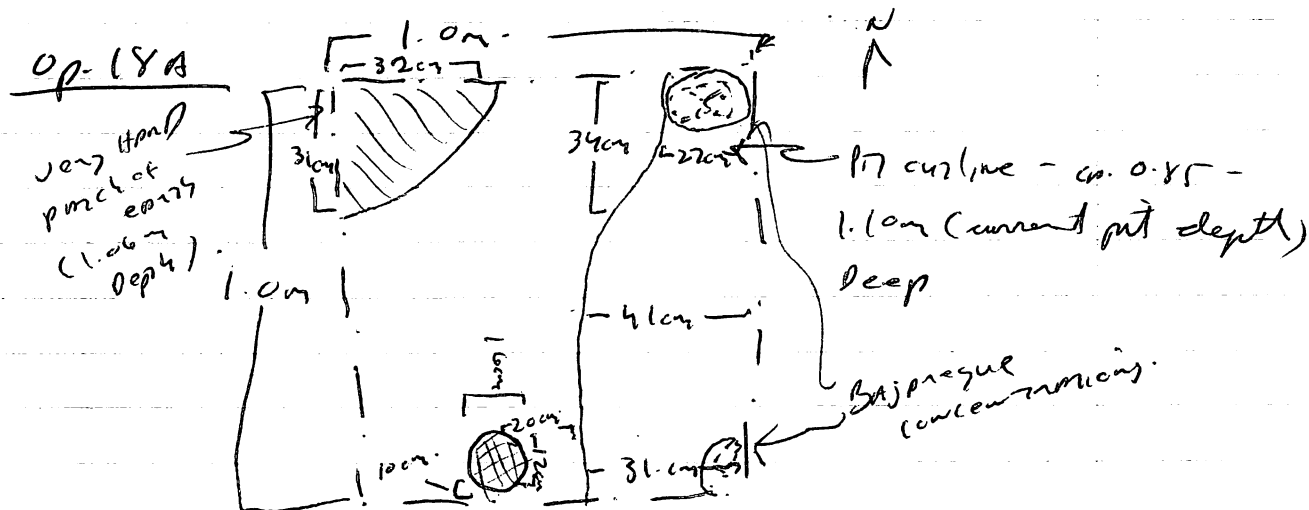 Op. 18A
1.0m.
32cm
N
very Hard
patch of
earth
(1.06m
Depth).
31cm
34cm
27cm
Pit outline - ca. 0.85 -
1.10m (current pit depth)
Deep
1.0m
41cm
20cm
12cm
10cm.
31.cm
Bajareque
concentrations.